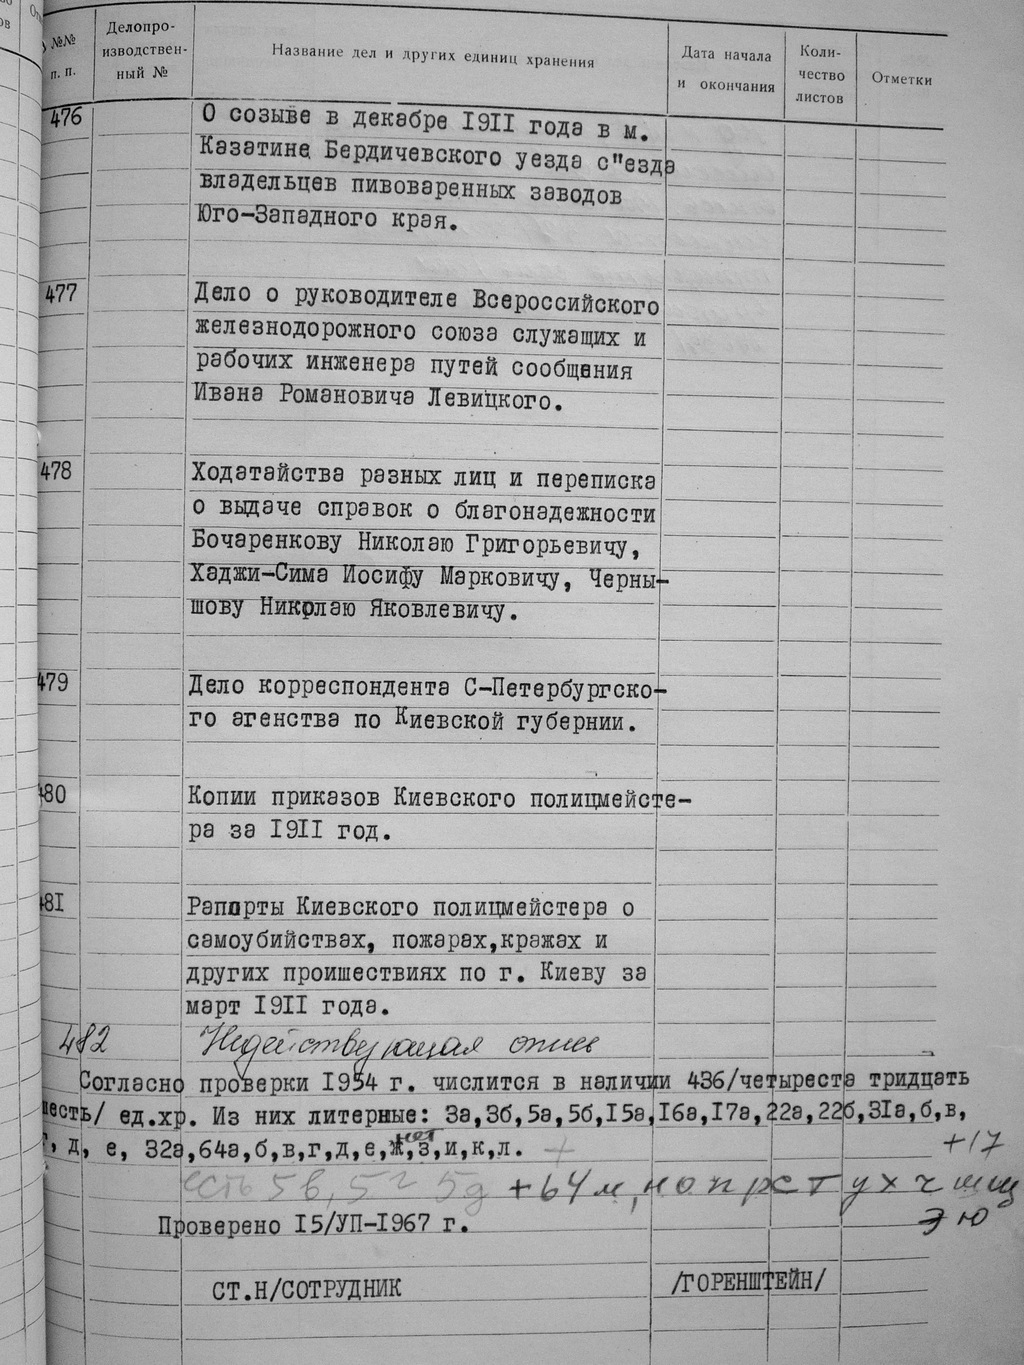 №№ п. п.
Делопро-
изводствен-
ный №
Название дел и других единиц хранения
Дата начала
и окончания
Коли-
чество
листов
Отметки
476
О созыве в декабре 1911 года в м.
Казатине Бердичевского уезда с"езда
владельцев пивоваренных заводов
Юго-Западного края.
477
Дело о руководителе Всероссийского
железнодорожного союза служащих и
рабочих инженера путей сообщения
Ивана Романовича Левицкого.
478
Ходатайства разных лиц и переписка
о выдаче справок о благонадежности
Бочаренкову Николаю Григорьевичу,
Хаджи-Сима Иосифу Марковичу, Черны-
шову Николаю Яковлевичу.
479
Дело корреспондента С-Петербургско-
го агенства по Киевской губернии.
480
Копии приказов Киевского полицмейсте-
ра за 1911 год.
481
Рапорты Киевского полицмейстера о
самоубийствах, пожарах,кражах и
других проишествиях по г. Киеву за
март 1911 года.
482 Недействующая опись
Согласно проверки 1954 г. числится в наличии 436/четыреста тридцать
шесть/ ед.хр. Из них литерные: 3а,3б,5а,5б,15а,16а,17а,22а,22б,31а,б,в,
г, д, е, 32а,64а,б,в,г,д,е,ж,з,и,к,л. +
нет
+17
есть 5в, 5г 5д +64м,нопрстухчшщ
эю
Проверено 15/УП-1967 г.
СТ.Н/СОТРУДНИК /ГОРЕНШТЕЙН/